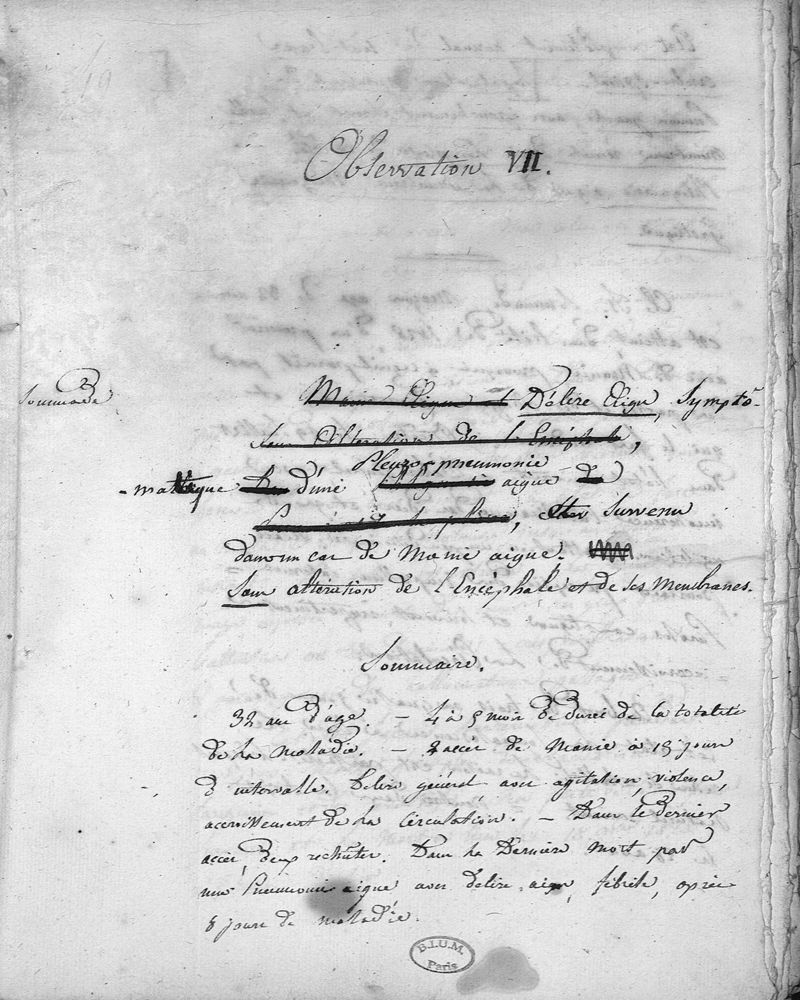 Observation VII.
Sommade
Manie Aigue et Délire Aigu, Sympto-
Sans Altération de l'Encéphale,
Pleuro-pneumonie
-matique d'une aiguë de
, survenu
dans un cas de Manie aigue.
Sans altération de l'Encéphale et de ses Membranes.
Sommaire.
32 ans d'age. — 4 à 5 mois de durée de la totalité
de la maladie. — 2 accès de Manie à 15 jours
d'intervalle. Délire général avec agitation, violence,
accroissement de la circulation. — Dans le dernier
accès, deux rechutes. Dans la Dernière mort par
une Pneumonie aigue avec délire aigu, fébrile, après
8 jours de maladie.
B.I.U.M.
Paris